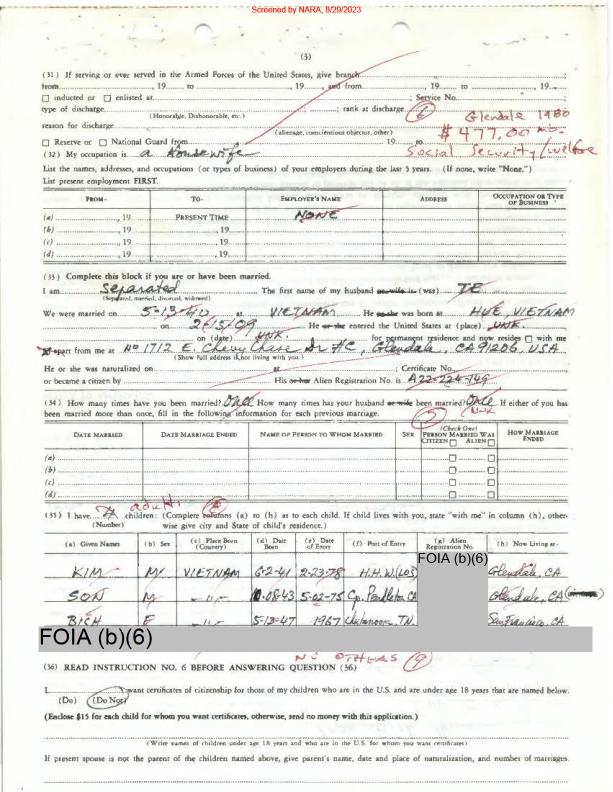 Screened by NARA, 8/29/2023
(3)
(31) If serving or ever served in the Armed Forces of the United States, give branch ;
from , 19 to , 19 , and from , 19 to , 19 ;
☐ inducted or ☐ enlisted at ; Service No. ;
type of discharge ; rank at discharge ;
(Honorable, Dishonorable, etc.)
reason for discharge
(alienage, conscientious objector, other)
Glendale 1980
$477,00
Social Security/welfare
☐ Reserve or ☐ National Guard from 19 to
(32) My occupation is a housewife
List the names, addresses, and occupations (or types of business) of your employers during the last 5 years. (If none, write "None.")
List present employment FIRST.
FROM- TO- EMPLOYER'S NAME ADDRESS OCCUPATION OR TYPE OF BUSINESS
(a) , 19 PRESENT TIME NONE
(b) , 19 , 19
(c) , 19 , 19
(d) , 19 , 19
(33) Complete this block if you are or have been married.
I am Separated The first name of my husband or wife is (was) TE
(Separated, married, divorced, widowed)
We were married on 5-13-40 at VIETNAM He or she was born at HUE, VIETNAM
on 2/15/09 He or she entered the United States at (place) UNK.
on (date) UNK. for permanent residence and now resides ☐ with me
apart from me at No 1712 E. Chevy Chase Dr #C, Glendale, CA 91206, USA
(Show full address if not living with you.)
He or she was naturalized on at ; Certificate No.
or became a citizen by His or her Alien Registration No. is A22-224-749
(34) How many times have you been married? How many times has your husband or wife been married? Once If either of you has
been married more than once, fill in the following information for each previous marriage.
5
DATE MARRIED DATE MARRIAGE ENDED NAME OF PERSON TO WHOM MARRIED SEX (Check One) PERSON MARRIED WAS CITIZEN ☐ ALIEN ☐ HOW MARRIAGE ENDED
(a) ☐ ☐
(b) ☐ ☐
(c) ☐ ☐
(d) ☐ ☐
adult
(35) I have children: (Complete columns (a) to (h) as to each child. If child lives with you, state "with me" in column (h), other-
(Number) wise give city and State of child's residence.)
(a) Given Names (b) Sex (c) Place Born (Country) (d) Date Born (e) Date of Entry (f) Port of Entry (g) Alien Registration No. (h) Now Living at-
FOIA (b)(6)
KIM M VIETNAM 6-2-41 2-23-78 Glendale, CA
SON M -"- 08-43 5-02-75 Cp. Pendleton CA Glendale, CA
BICH F -"- 5-13-47 1967 San Francisco, CA
FOIA (b)(6)
NO OTHERS 9
(36) READ INSTRUCTION NO. 6 BEFORE ANSWERING QUESTION (36)
I want certificates of citizenship for those of my children who are in the U.S. and are under age 18 years that are named below.
(Do) (Do Not)
(Enclose $15 for each child for whom you want certificates, otherwise, send no money with this application.)
(Write names of children under age 18 years and who are in the U.S. for whom you want certificates)
If present spouse is not the parent of the children named above, give parent's name, date and place of naturalization, and number of marriages.